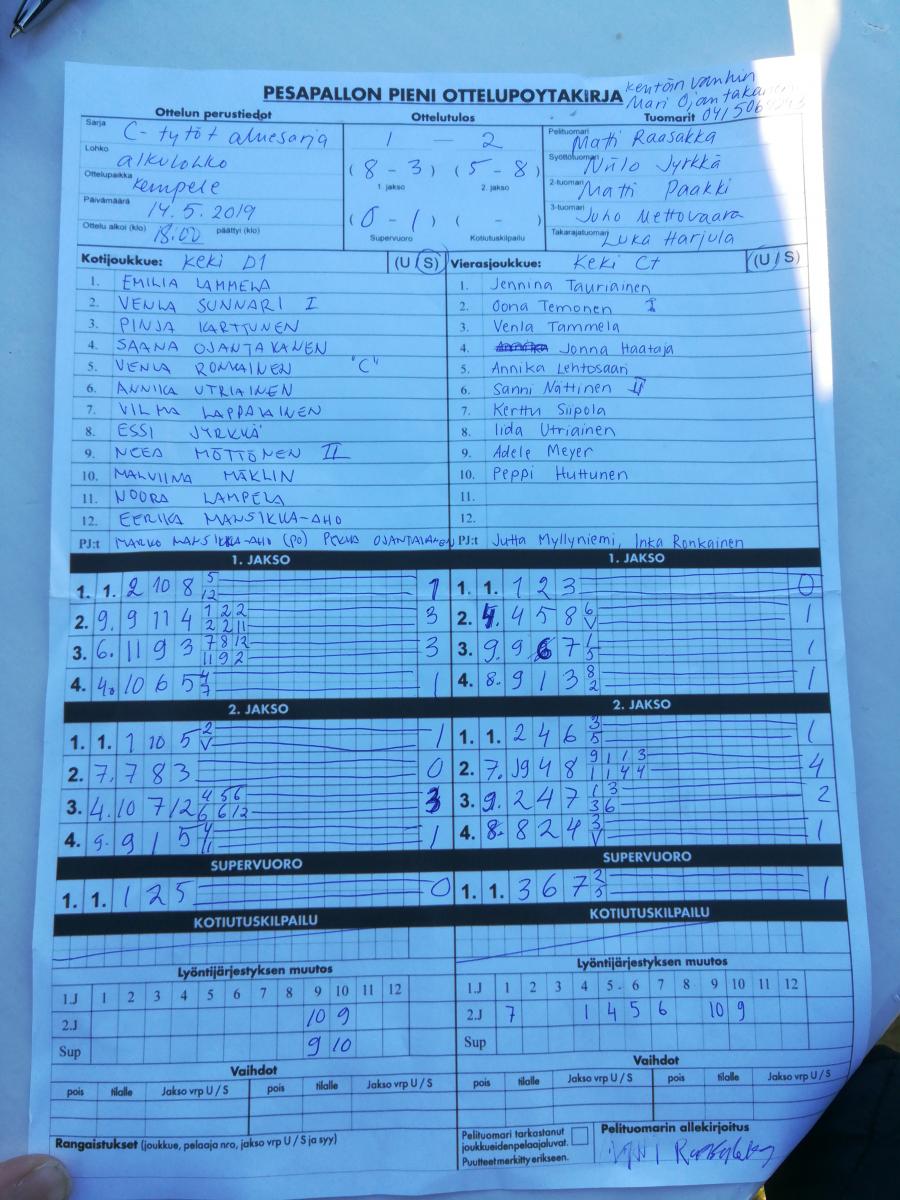 PESAPALLON PIENI OTTELUPOYTAKIRJA
kentän vanhin
Mari Ojantakanen
Ottelun perustiedot
Sarja C-tytöt aluesarja
Lohko alkulohko
Ottelupaikka Kempele
Päivämäärä 14.5.2019
Ottelu alkoi (klo) 18:00 päättyi (klo)
Ottelutulos
1 - 2
(8 - 3) (5 - 8)
1. jakso 2. jakso
(0 - 1) ( - )
Supervuoro Kotiutuskilpailu
Tuomarit
Pelituomari Matti Raasakka
Syöttötuomari Niilo Jyrkkä
2-tuomari Matti Paakki
3-tuomari Juho Mettovaara
Takarajatuomari Luka Harjula
Kotijoukkue: Keki D1 (U/S)
1. EMILIA LAMMELA
2. VENLA SUNNARI I
3. PINJA KARTTUNEN
4. SAANA OJANTAKANEN
5. VENLA RONKAINEN "C"
6. ANNIKA UTRIAINEN
7. VILMA LAPPALAINEN
8. ESSI JYRKKÄ
9. NEEA MÖTTÖNEN II
10. MALVIINA MÄKLIN
11. NOORA LAMPELA
12. EERIKA MANSIKKA-AHO
PJ:t MARKO MANSIKKA-AHO (PO) PEKKA OJANTAKANEN
Vierasjoukkue: Keki C+ (U/S)
1. Jennina Tauriainen
2. Oona Temonen I
3. Venla Tammela
4. Jonna Haataja
5. Annika Lehtosaari
6. Sanni Nättinen II
7. Kerttu Siipola
8. Iida Utriainen
9. Adele Meyer
10. Peppi Huttunen
11.
12.
PJ:t Jutta Myllyniemi, Inka Ronkainen
1. JAKSO
1. 1. 2 10 8 5 12 1
2. 9. 9 11 4 1 2 2 2 2 11 3
3. 6. 11 9 3 7 8 12 11 9 2 3
4. 4. 10 6 5 4 7 1
2. JAKSO
1. 1. 1 10 5 2 V 1
2. 7. 7 8 3 0
3. 4. 10 7 12 4 5 6 6 6 12 3
4. 9. 9 1 5 4 11 1
SUPERVUORO
1. 1. 1 2 5 0
KOTIUTUSKILPAILU
1. JAKSO
1. 1. 1 2 3 0
2. 4. 4 5 8 6 V 1
3. 9. 9 6 7 1 5 1
4. 8. 9 1 3 8 2 1
2. JAKSO
1. 1. 2 4 6 3 5 1
2. 7. 9 4 8 9 1 1 3 1 1 4 4 4
3. 9. 2 4 7 1 3 3 6 2
4. 8. 8 2 4 3 V 1
SUPERVUORO
1. 1. 3 6 7 2 5 1
KOTIUTUSKILPAILU
Lyöntijärjestyksen muutos
1.J 1 2 3 4 5 6 7 8 9 10 11 12
2.J 10 9
Sup 9 10
Vaihdot
pois tilalle Jakso vrp U / S pois tilalle Jakso vrp U / S
Rangaistukset (joukkue, pelaaja nro, jakso vrp U / S ja syy)
Lyöntijärjestyksen muutos
1.J 1 2 3 4 5 6 7 8 9 10 11 12
2.J 7 1 4 5 6 10 9
Sup
Vaihdot
pois tilalle Jakso vrp U / S pois tilalle Jakso vrp U / S
Pelituomari tarkastanut
joukkueidenpelaajaluvat.
Puutteet merkitty erikseen.
Pelituomarin allekirjoitus